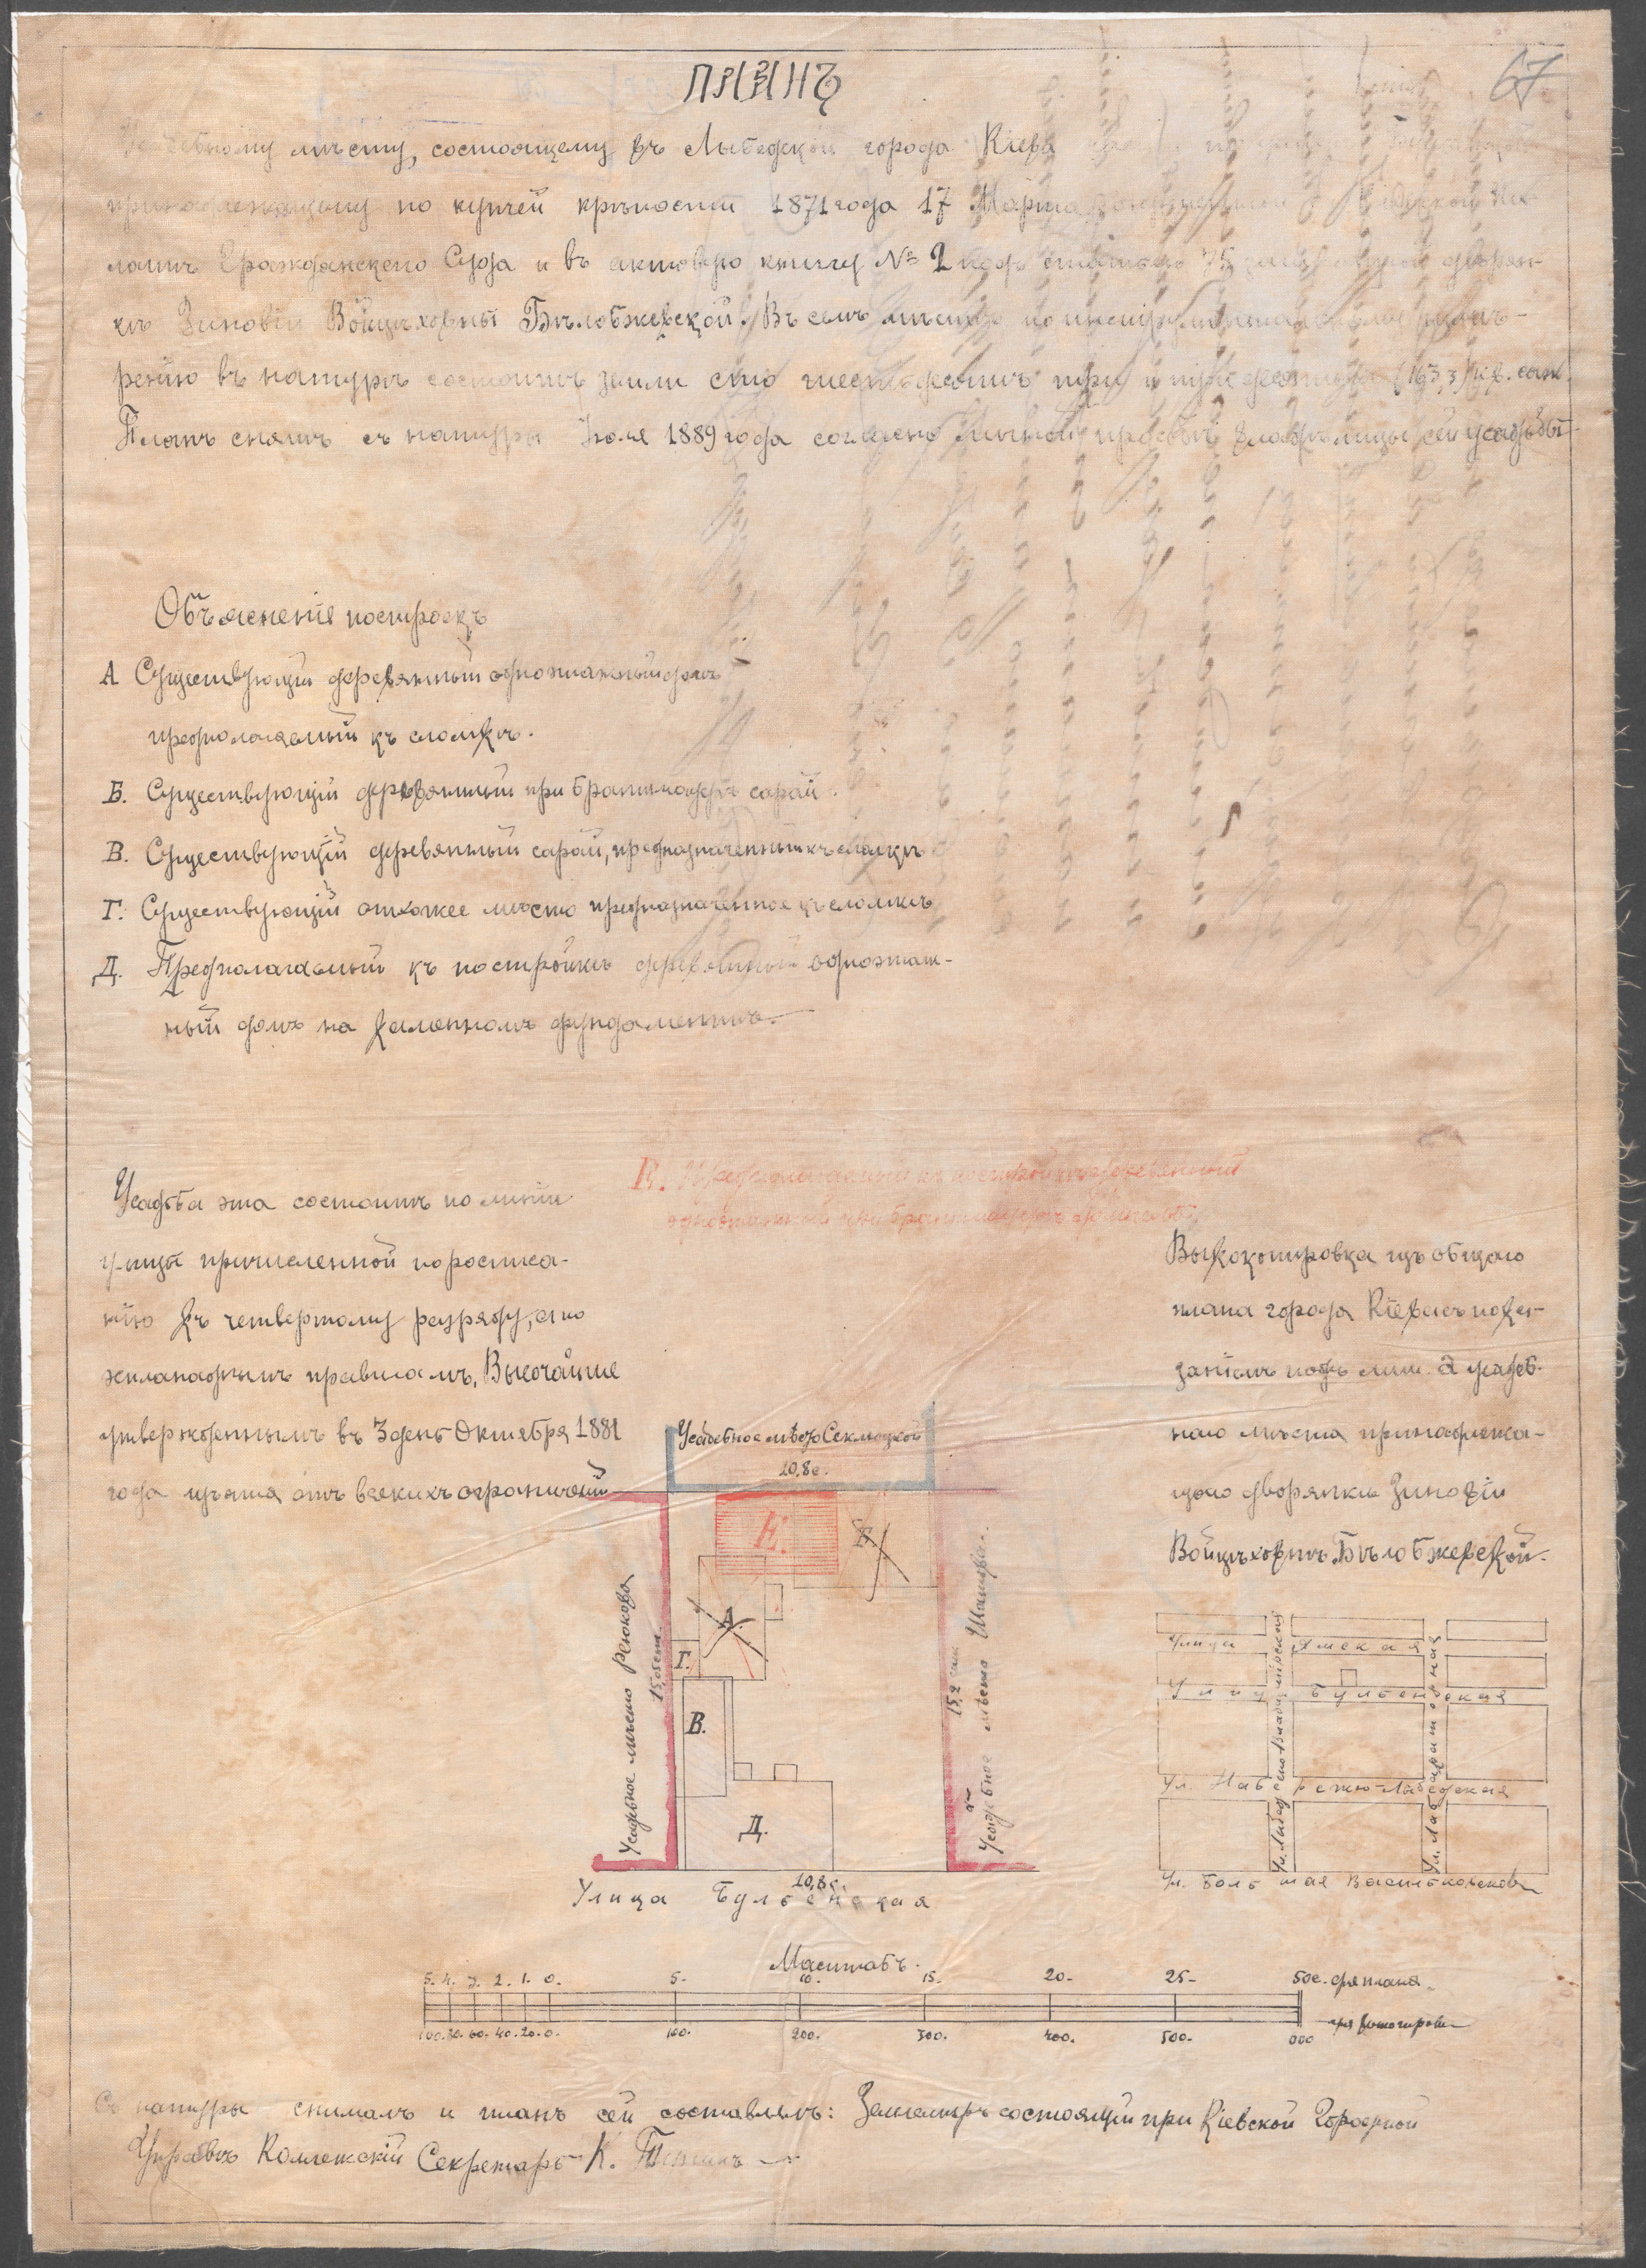 ПЛАНЪ
67
мѣсту, состоящему въ Лыбедской города Кіева
принадлежащему по купчей крѣпости 1871 года 17 Марта
латѣ Гражданскаго Суда и въ актовую книгу № 2 подъ 75 дворян-
кѣ Зиновіи Войцѣховны Бѣлобжевской. Въ семъ мѣстѣ по
ренію въ натурѣ состоитъ земли сто шестьдесятъ три и три десятыхъ (163,3) кв. саж.
Планъ снятъ съ натуры Іюля 1889 года согласно личной просьбы владѣлицы сей усадьбы
Объясненіе построекъ
А Существующій деревянный одноэтажный домъ
предполагаемый къ сломкѣ.
Б. Существующій деревянный при брантмауерѣ сарай.
В. Существующій деревянный сарай, предназначенный къ сломкѣ
Г. Существующій отхожее мѣсто предназначенное къ сломкѣ
Д. Предполагаемый къ постройкѣ деревянный одноэтаж-
ный домъ на каменномъ фундаментѣ.
Е. Предполагаемый къ постройкѣ деревянный
одноэтажный при брантмауерѣ флигель
Усадьба эта состоитъ по линіи
улицы причисленной по росписа-
нію къ четвертому разряду, а по
эспланаднымъ правиламъ, Высочайше
утвержденнымъ въ 3 день Октября 1881
года изъята отъ всякихъ ограниченій
Выкокопировка изъ общаго
плана города Кіева съ пока-
заніемъ подъ лит. а усадеб-
наго мѣста принадлежа-
щаго дворянкѣ Зиновіи
Войцѣховнѣ Бѣлобжевской.
Усадебное мѣсто Секлюцкой
10,8 с.
Е.
Б
А.
Г.
В.
Д.
Усадебное мѣсто Рѣюкова
15, саж.
Усадебное мѣсто
15,2 саж
10,8 с.
Улица Бульенская
Улица Ямская
Улица Бульенская
Ул. Набережно-Лыбедская
Ул. Большая Васильковская
Ул. Лыбедско-Владимірская
Ул. Лабораторная
Масштабъ.
5. 4. 3. 2. 1. 0. 5. 10. 15. 20. 25. 50 с. для плана
100. 80. 60. 40. 20. 0. 100. 200. 300. 400. 500. 000 для
Съ натуры снималъ и планъ сей составлялъ: Землемѣръ состоящій при Кіевской Городской
Управѣ Коллежскій Секретарь К.